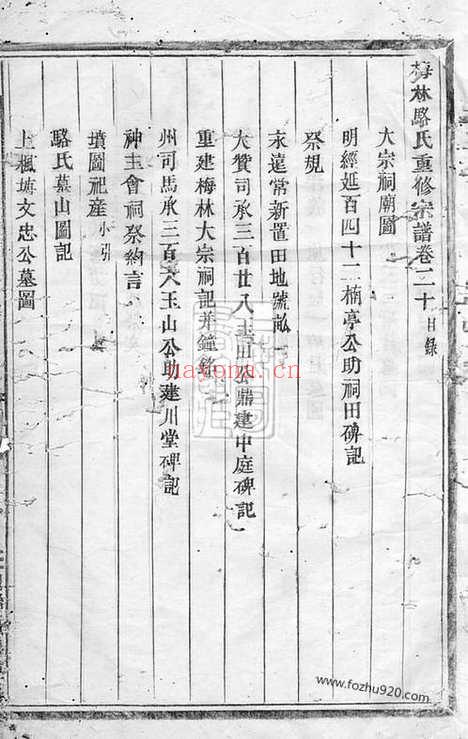 梅林駱氏重修宗譜卷二十 目錄
大宗祠廟圖
明經延百四十二楠亭公助祠田碑記
祭規
永遠常新置田地號畝
大贊司承三百廿八玉田公鼎建中庭碑記
重建梅林大宗祠記并鐘欵
州司馬承三百八玉山公助建川堂碑記
神主會祠祭約言
墳圖祀產 小引
駱氏墓山圖記
上楓塘文忠公墓圖
nayona.cn
www.fozhu920.com